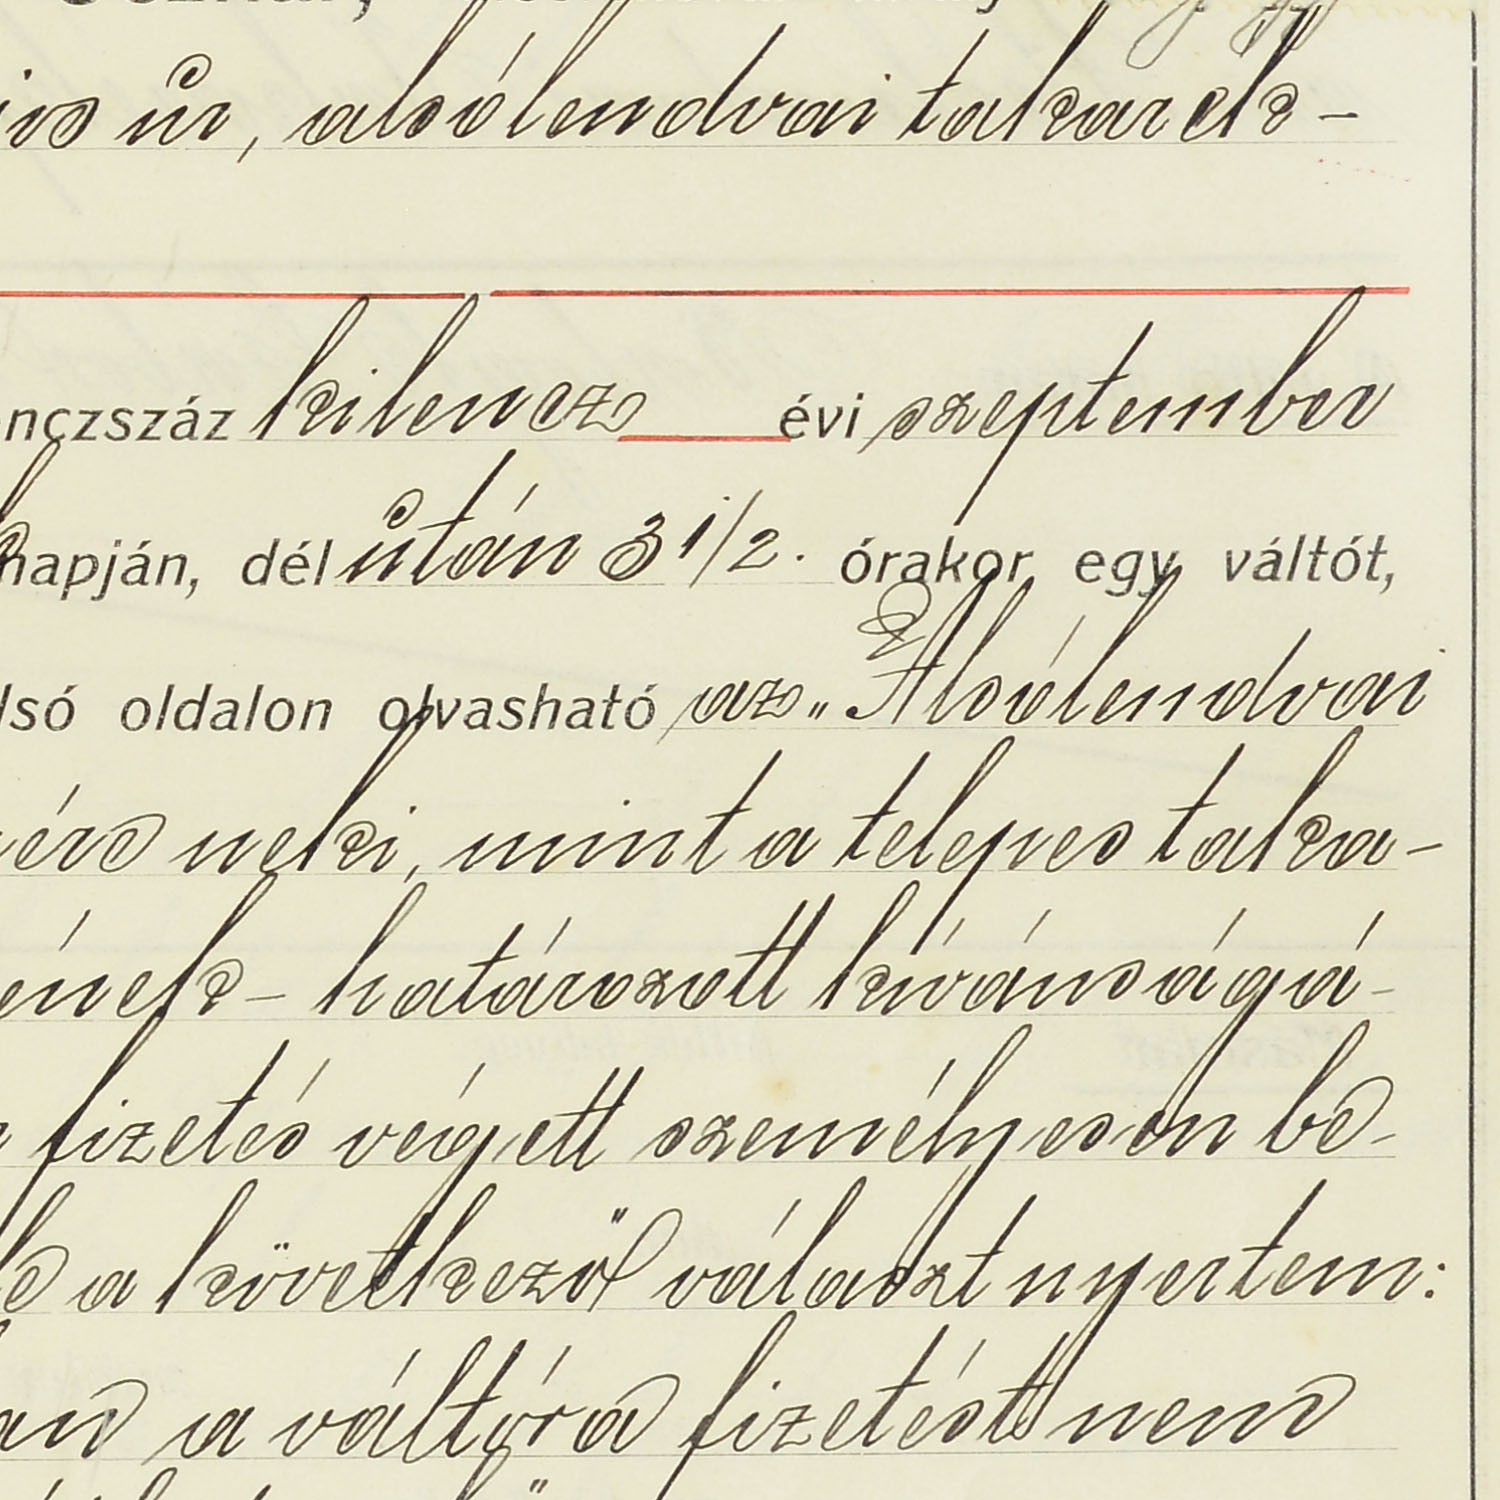 úr, alsólendvai takarék-
kilencz évi szeptember
napján, dél után 3 1/2. órakor egy váltót,
oldalon olvasható az „Alsólendvai
neki, mint a telepes taka-
- határozott kivánságá-
fizetés végett személyesen be-
a következő választ nyertem:
a váltóra fizetést nem